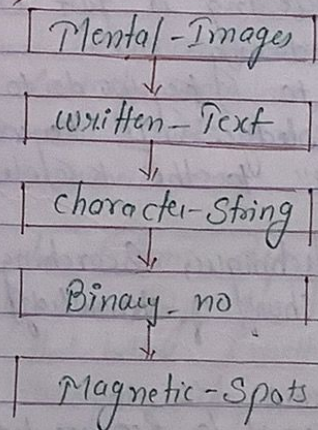 Mental-Images
Written-Text
Character-String
Binary-no
Magnetic-Spots